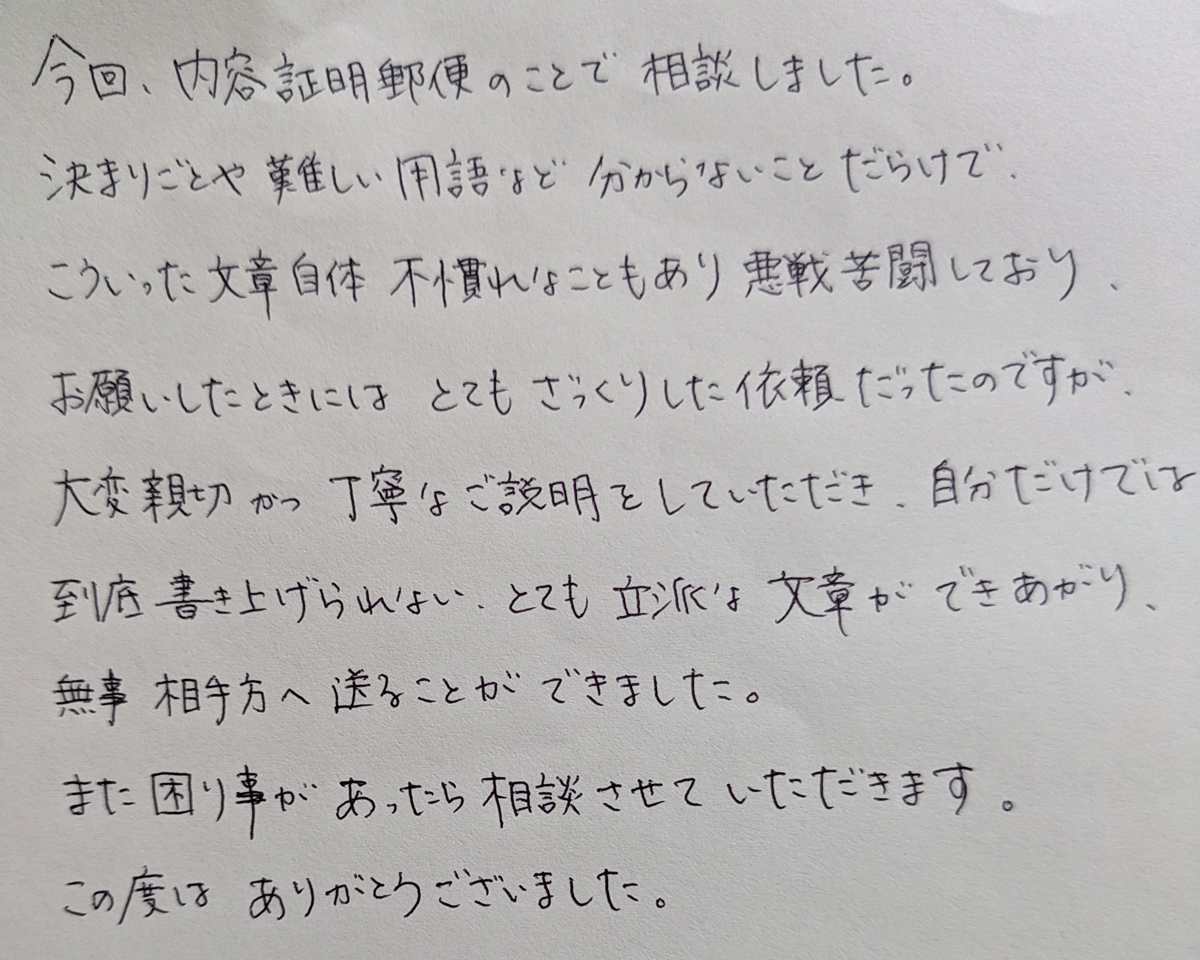 今回、内容証明郵便のことで 相談しました。
決まりごとや 難しい 用語など 分からないこと だらけで、
こういった文章自体 不慣れなこともあり 悪戦苦闘しており、
お願いしたときには とても ざっくりした依頼だったのですが、
大変親切 かつ 丁寧なご説明をしていただき、自分だけでは
到底 書き上げられない、とても 立派な 文章が できあがり、
無事 相手方へ 送ることが できました。
また 困り事が あったら 相談させて いただきます。
この度は ありがとうございました。